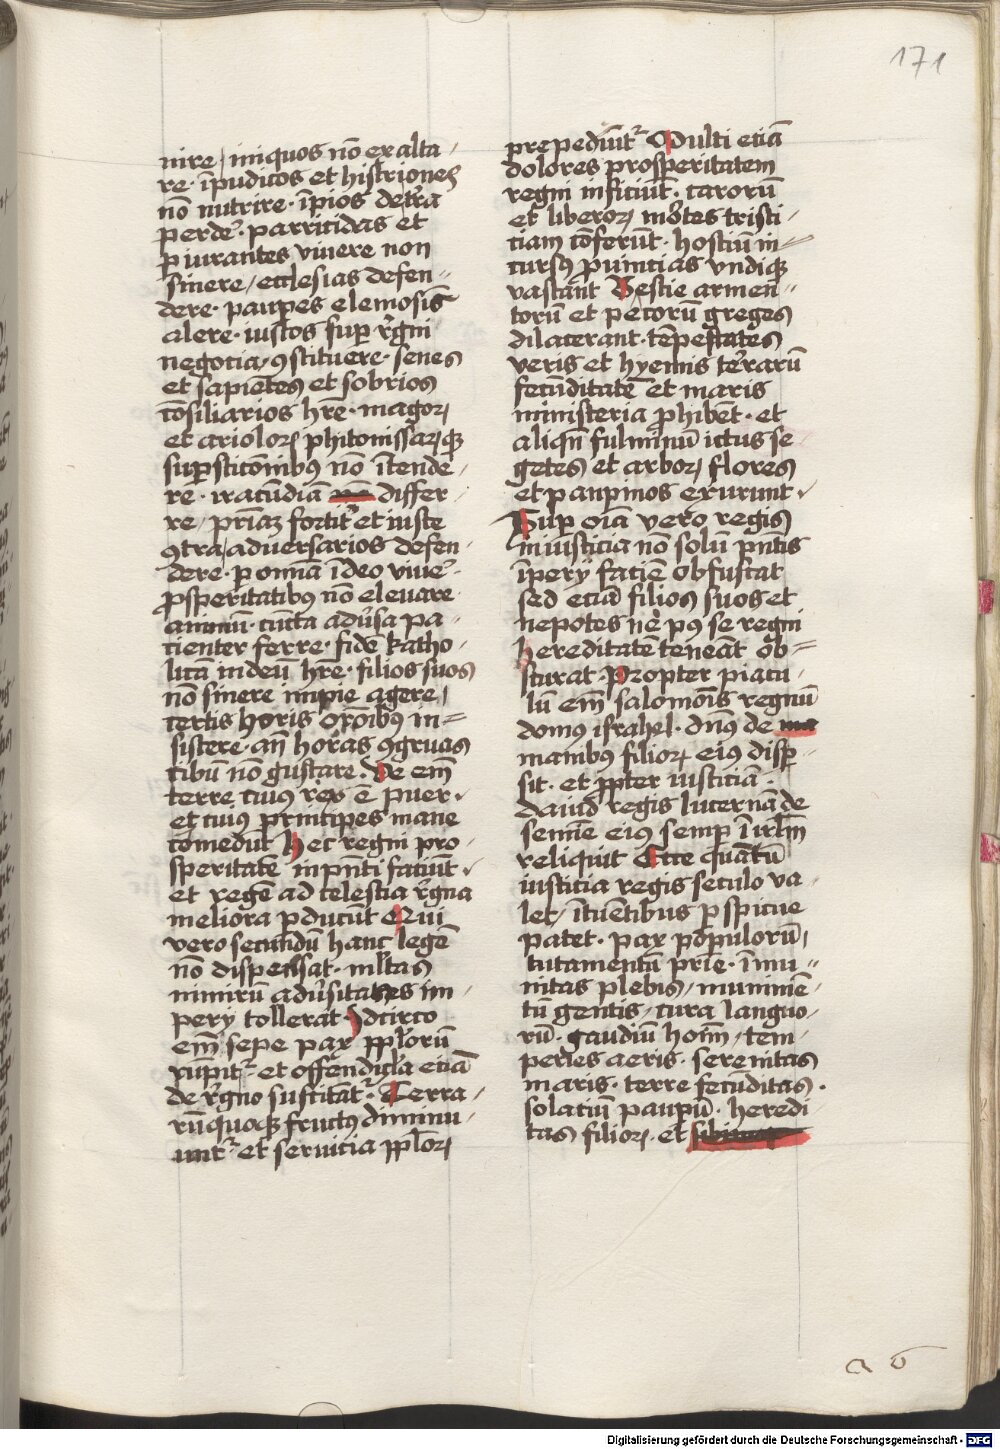 171
nire / iniquos nō exalta /
re · īpudicos et histriones
nō nutrire · īpios de tr̄a
perde᷑ · parricidas et
piurantes viuere non
sinere / ecclesias defen=
dere · paupes elemosiꝭ
alere · iustos sup r̄gni
negocia / ꝯstituere · senes
et sapiētes et sobrios
cōsiliarios hr̄e · magoꝝ
et arioloꝝ phitonissaꝝqꝫ
suꝑsticōnibꝰ nō ītende /
re · iracūdiā differ /
re / pr̄iaꝫ fortit᷑ et iuste
ꝯtra / aduersarios defen
dere · p omnīa ī deo viue᷑ ·
ꝓsperitatibꝰ nō eleuare
animū · cūcta adūsa pa /
cienter ferre · fidē katho /
licā in deū hr̄e · filios suos
nō sinere impie agere /
certis horis orōibꝰ in=
sistere · an̄ horas ꝯgruas
cibū nō gustare · Ve em̄
terre cuius rex ē puer ·
et cuiꝰ prīncipes mane
comedūt Hec regni pro /
speritatē in pn̄ti faciūt ·
et regē ad celestia r̄gna
meliora pducūt Qui
vero secundū hanc legē
nō dispensat · ml̄tas
nimirū adūsitates im /
pery tollerat Idcirco
em̄ sepe pax ppl̄orū
rūpit᷑ · et offendicl̄a eciā
de r̄gno suscitāt᷑ · Terra /
rū quoqꝫ fructꝰ diminu /
unt᷑ · et seruicia ppl̄oꝝ
prepediūt᷑ Multi eciā
dolores prosperitatem
regni inficiūt · carorū
et liberoꝝ mortes tristi /
ciam cōferūt · hostiū in=
cursꝰ ꝓuincias vndiqꝫ
vastant Bestie armen=
torū et pecorū greges
dilacerant · tēpestates
veris et hyemis terrarū
fecūditatē et maris
ministeria ꝓhibēt · et
aliqn̄ fulminū ictus se /
getes et arboꝝ flores
et pampinos exurunt ·
Sup oīa vero regis
iniusticia nō solū pn̄tis
īpery faciē obfuscat
sed eciā filios suos et
nepotes ne pꝰ se regni
hereditatē teneāt ob=
scurat · Propter piacu /
lū em̄ salomōis regnū
domꝰ israhel · dn̄s de
manibus filioꝝ eiꝰ disp̄ /
sit · et ꝓpter iusticiā ·
dauid regis lucernā de
semīe eiꝰ semp ī irl̄m
reliquit Ecce quātū
iusticia regis seculo va /
let / ītuētibus pspicue
patet · pax pp̄ulorū /
tutamentū pr̄ie · īmu=
nitas plebis / munimē /
tū gentis / cura languo /
rū · gaudiū hoim̄ / tem /
peries aeris · serenitas
maris · terre fecūditas ·
solaciū paupū · heredi /
tas filioꝝ · et
Digitalisierung gefördert durch die Deutsche Forschungsgemeinschaft - DFG